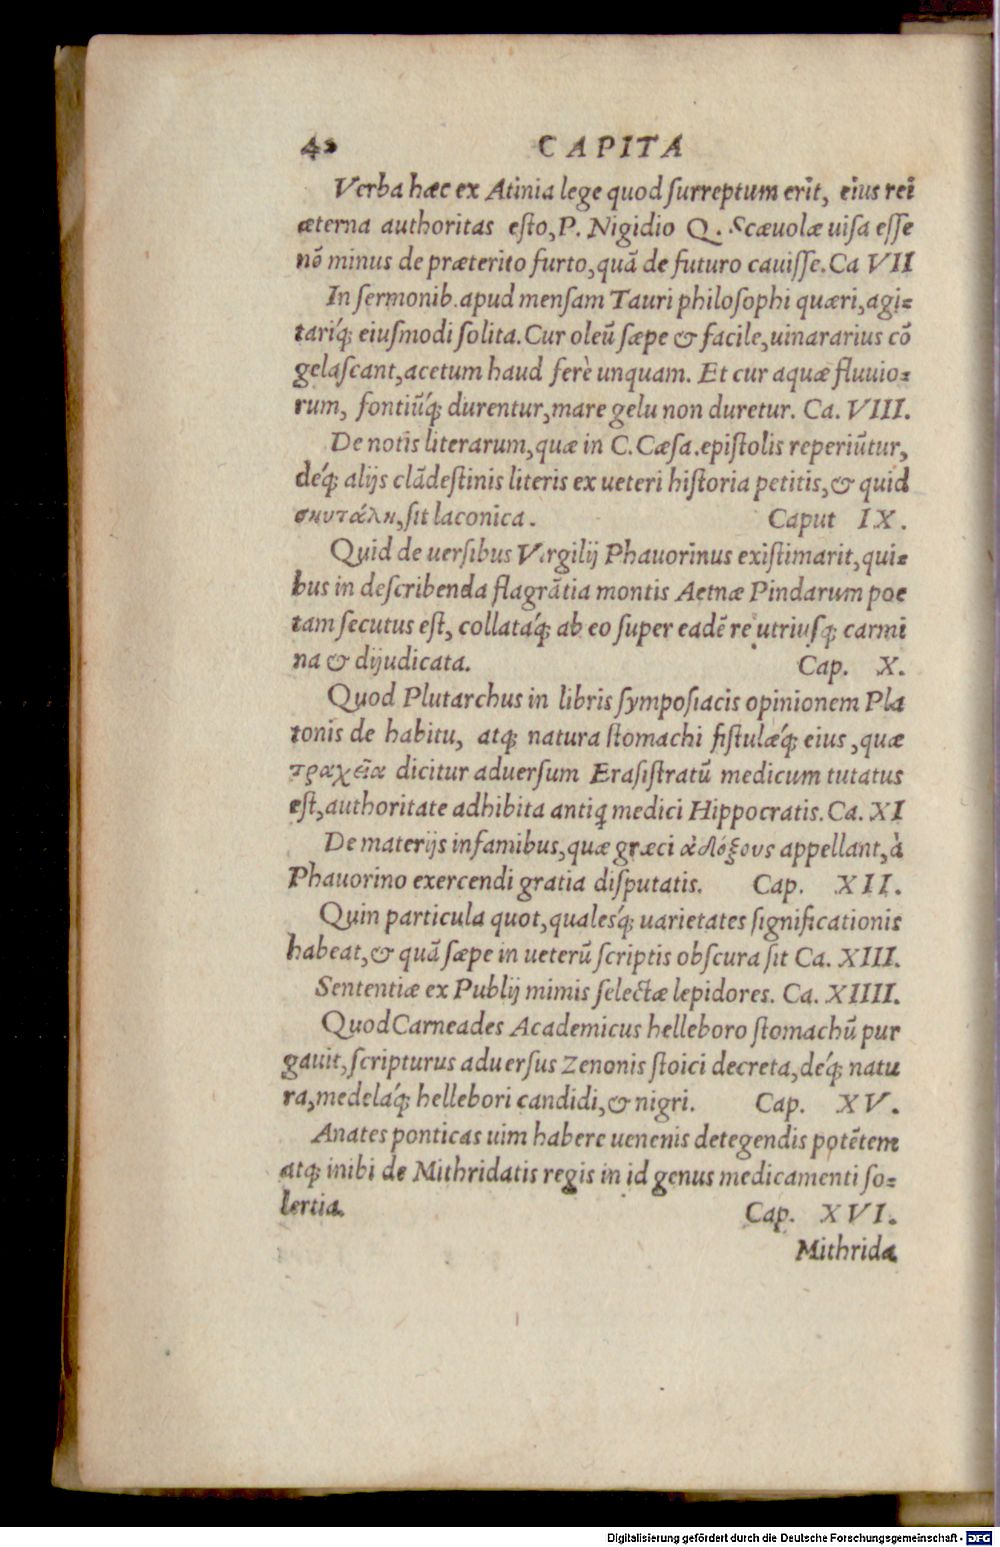 42 CAPITA
Verba hæc ex Atinia lege quod ſurreptum erit, eius rei
æterna authoritas eſto, P. Nigidio Q. Scæuolæ uiſa eſſe
nō minus de præterito furto, quā de futuro cauiſſe. Ca VII
In ſermonib. apud menſam Tauri philoſophi quæri, agi=
tariq́; eiuſmodi ſolita. Cur oleū ſæpe & facile, uinararius cō
gelaſcant, acetum haud ferè unquam. Et cur aquæ fluuio=
rum, fontiūq́; durentur, mare gelu non duretur. Ca. VIII.
De notis literarum, quæ in C. Cæſa. epiſtolis reperiūtur,
deq́; alijs clādeſtinis literis ex ueteri hiſtoria petitis, & quid
σκυτάλη, ſit laconica. Caput IX.
Quid de uerſibus Virgilij Phauorinus exiſtimarit, qui=
bus in deſcribenda flagrātia montis Aetnæ Pindarum poe
tam ſecutus eſt, collataq́; ab eo ſuper eadē re utriuſq; carmi
na & dijudicata. Cap. X.
Quod Plutarchus in libris ſympoſiacis opinionem Pla
tonis de habitu, atq; natura ſtomachi fiſtulæq́; eius, quæ
τραχεῖα dicitur aduerſum Eraſiſtratū medicum tutatus
eſt, authoritate adhibita antiq medici Hippocratis. Ca. XI
De materijs infamibus, quæ græci ἀδόξους appellant, à
Phauorino exercendi gratia diſputatis. Cap. XII.
Quin particula quot, qualesq́; uarietates ſignificationis
habeat, & quā ſæpe in ueterū ſcriptis obſcura ſit Ca. XIII.
Sententiæ ex Publij mimis ſelectæ lepidores. Ca. XIIII.
Quod Carneades Academicus helleboro ſtomachū pur
gauit, ſcripturus aduerſus Zenonis ſtoici decreta, deq́; natu
ra, medelaq́; hellebori candidi, & nigri. Cap. XV.
Anates ponticas uim habere uenenis detegendis potētem
atq; inibi de Mithridatis regis in id genus medicamenti ſo=
lertia. Cap. XVI.
Mithrida
Digitalisierung gefördert durch die Deutsche Forschungsgemeinschaft - DFG